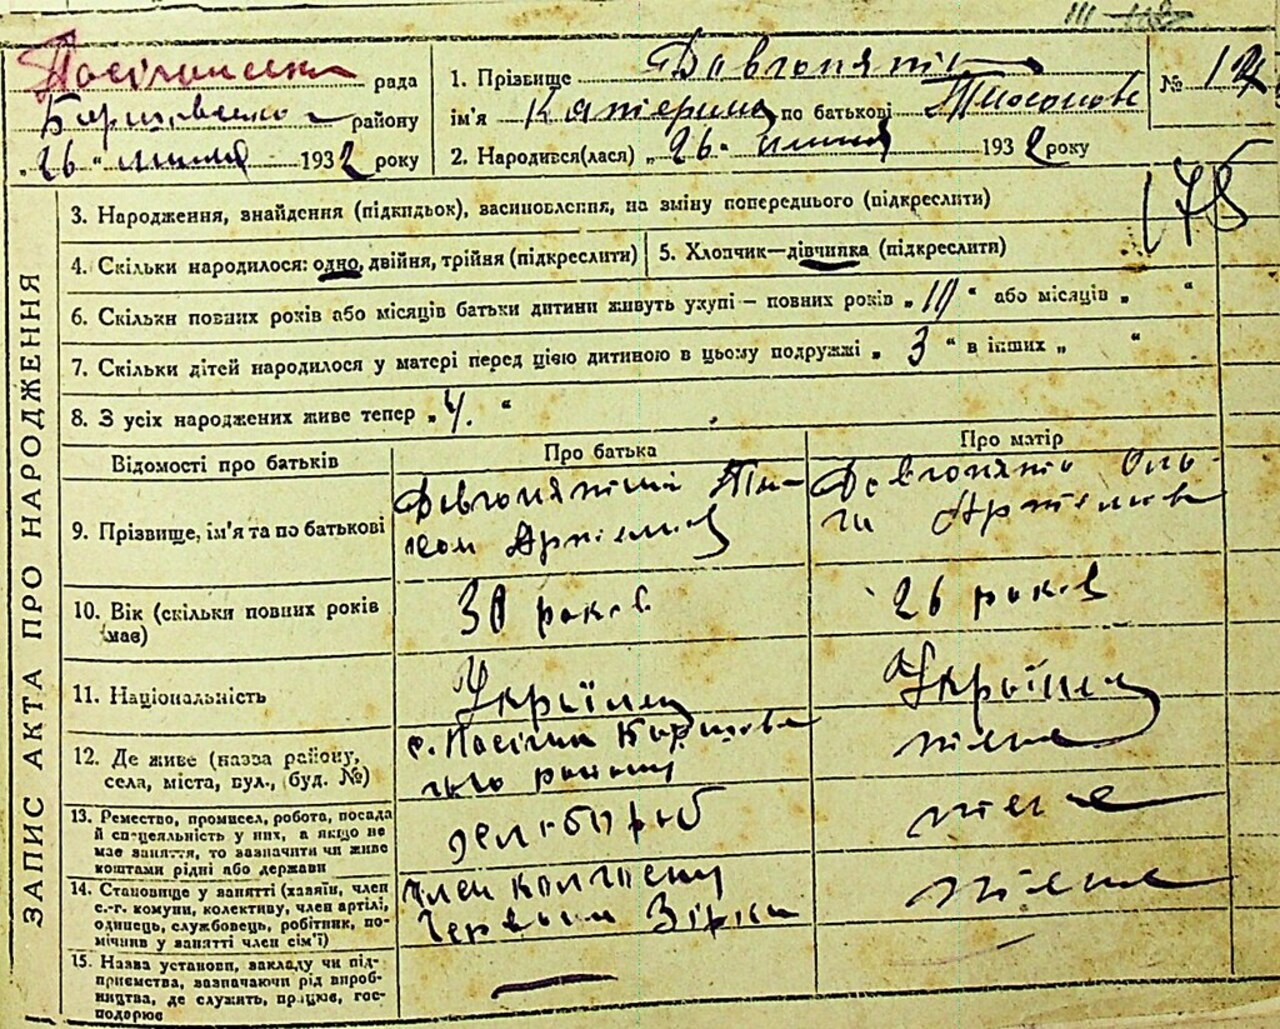 рада
району
"26" липня 1932 року
1. Прізвище Довгопят
ім'я Катерина по батькові
2. Народився(лася) "26" липня 1932 року
№ 12
178
ЗАПИС АКТА ПРО НАРОДЖЕННЯ
3. Народження, знайдення (підкидьок), васиновлення, на зміну попереднього (підкреслити)
4. Скільки народилося: одно, двійня, трійня (підкреслити)
5. Хлопчик—дівчинка (підкреслити)
6. Скільки повних років або місяців батьки дитини живуть укупі – повних років „10“ або місяців „ “
7. Скільки дітей народилося у матері перед цією дитиною в цьому подружжі „3“ в інших „ “
8. З усіх народжених живе тепер „4.“
Відомості про батьків
Про батька
Про матір
9. Прізвище, ім'я та по батькові
Артемов
Довгопят Оль-
га Артемов
10. Вік (скільки повних років має)
30 років
26 років
11. Національність
Українец
Українка
12. Де живе (назва району,
села, міста, вул., буд. №)
с. Посілки
району
13. Ремество, промисел, робота, посада
й спецеяльність у них, а якщо не
має заняття, то зазначити чи живе
коштами рідні або держави
хлібороб
14. Становище у занятті (хазяїн, член
с.-г. комуни, колективу, член артілі,
одинець, службовець, робітник, по-
мічнив у занятті член сім'ї)
член колгоспу
Червоний Зірки
15. Назва установи, закладу чи під-
приємства, зазначаючи рід вироб-
ництва, де служить, працює, гос-
подорює